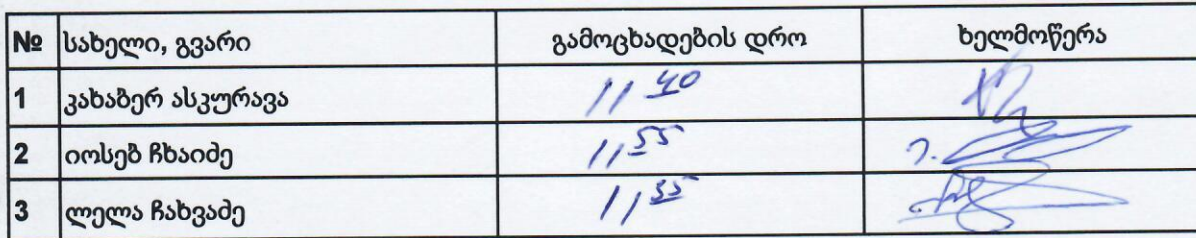 № სახელი, გვარი გამოცხადების დრო ხელმოწერა
1 კახაბერ ასკურავა 11 40
2 იოსებ ჩხაიძე 11 55
3 ლელა ჩახვაძე 11